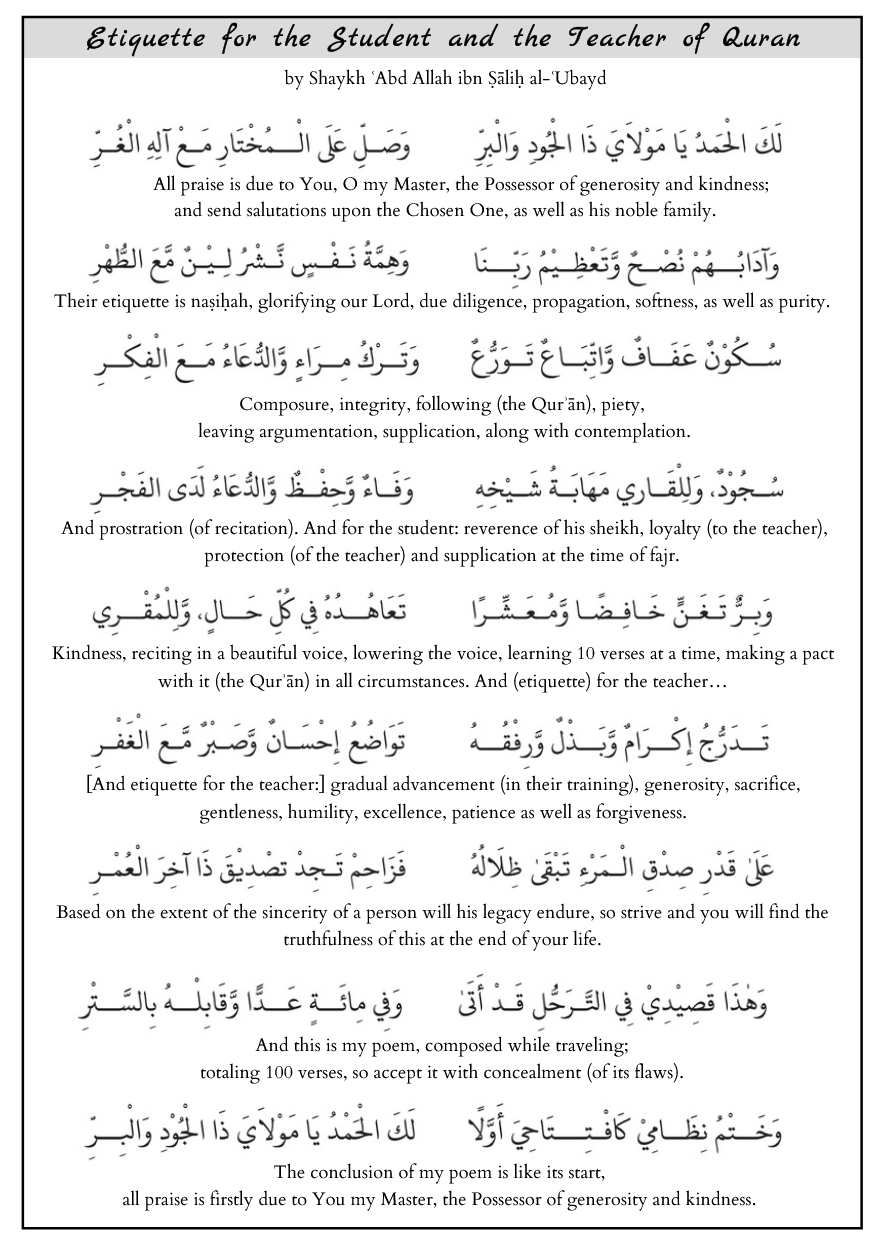 Etiquette for the Student and the Teacher of Quran
by Shaykh ʿAbd Allah ibn Ṣāliḥ al-ʿUbayd
لَكَ الْحَمْدُ يَا مَوْلَايَ ذَا الْجُودِ وَالْبِرِّ وَصَلِّ عَلَى الْمُخْتَارِ مَعْ آلِهِ الْغُرِّ
All praise is due to You, O my Master, the Possessor of generosity and kindness;
and send salutations upon the Chosen One, as well as his noble family.
وَآدَابُهُمْ نُصْحٌ وَّتَعْظِيْمُ رَبِّنَا وَهِمَّةُ نَفْسٍ نَّشْرُ لِيْنٌ مَّعَ الطُّهْرِ
Their etiquette is naṣiḥah, glorifying our Lord, due diligence, propagation, softness, as well as purity.
سُكُوْنٌ عَفَافٌ وَّاتِّبَاعٌ تَوَرُّعٌ وَتَرْكُ مِرَاءٍ وَّالدُّعَاءُ مَعَ الْفِكْرِ
Composure, integrity, following (the Qurʾān), piety,
leaving argumentation, supplication, along with contemplation.
سُجُوْدٌ، وَلِلْقَارِي مَهَابَةُ شَيْخِهِ وَفَاءٌ وَّحِفْظٌ وَّالدُّعَاءُ لَدَى الفَجْرِ
And prostration (of recitation). And for the student: reverence of his sheikh, loyalty (to the teacher),
protection (of the teacher) and supplication at the time of fajr.
وَبِرٌّ تَغَنٍّ خَافِضًا وَّمُعَشِّرًا تَعَاهُدُهُ فِي كُلِّ حَالٍ، وَّلِلْمُقْرِي
Kindness, reciting in a beautiful voice, lowering the voice, learning 10 verses at a time, making a pact
with it (the Qurʾān) in all circumstances. And (etiquette) for the teacher…
تَدَرُّجُ إِكْرَامٌ وَّبَذْلٌ وَّرِفْقُهُ تَوَاضُعُ إِحْسَانٌ وَّصَبْرٌ مَّعَ الْغَفْرِ
[And etiquette for the teacher:] gradual advancement (in their training), generosity, sacrifice,
gentleness, humility, excellence, patience as well as forgiveness.
عَلَىٰ قَدْرِ صِدْقِ الْمَرْءِ تَبْقَىٰ ظِلَالُهُ فَزَاحِمْ تَجِدْ تصْدِيْقَ ذَا آخِرَ الْعُمْرِ
Based on the extent of the sincerity of a person will his legacy endure, so strive and you will find the
truthfulness of this at the end of your life.
وَهٰذَا قَصِيْدِيْ فِي التَّرَحُّلِ قَدْ أَتَىٰ وَفِي مِائَةٍ عَدًّا وَّقَابِلْهُ بِالسَّتْرِ
And this is my poem, composed while traveling;
totaling 100 verses, so accept it with concealment (of its flaws).
وَخَتْمُ نِظَامِيْ كَافْتِتَاحِيَ أَوَّلًا لَكَ الْحَمْدُ يَا مَوْلَايَ ذَا الْجُوْدِ وَالْبِرِّ
The conclusion of my poem is like its start,
all praise is firstly due to You my Master, the Possessor of generosity and kindness.